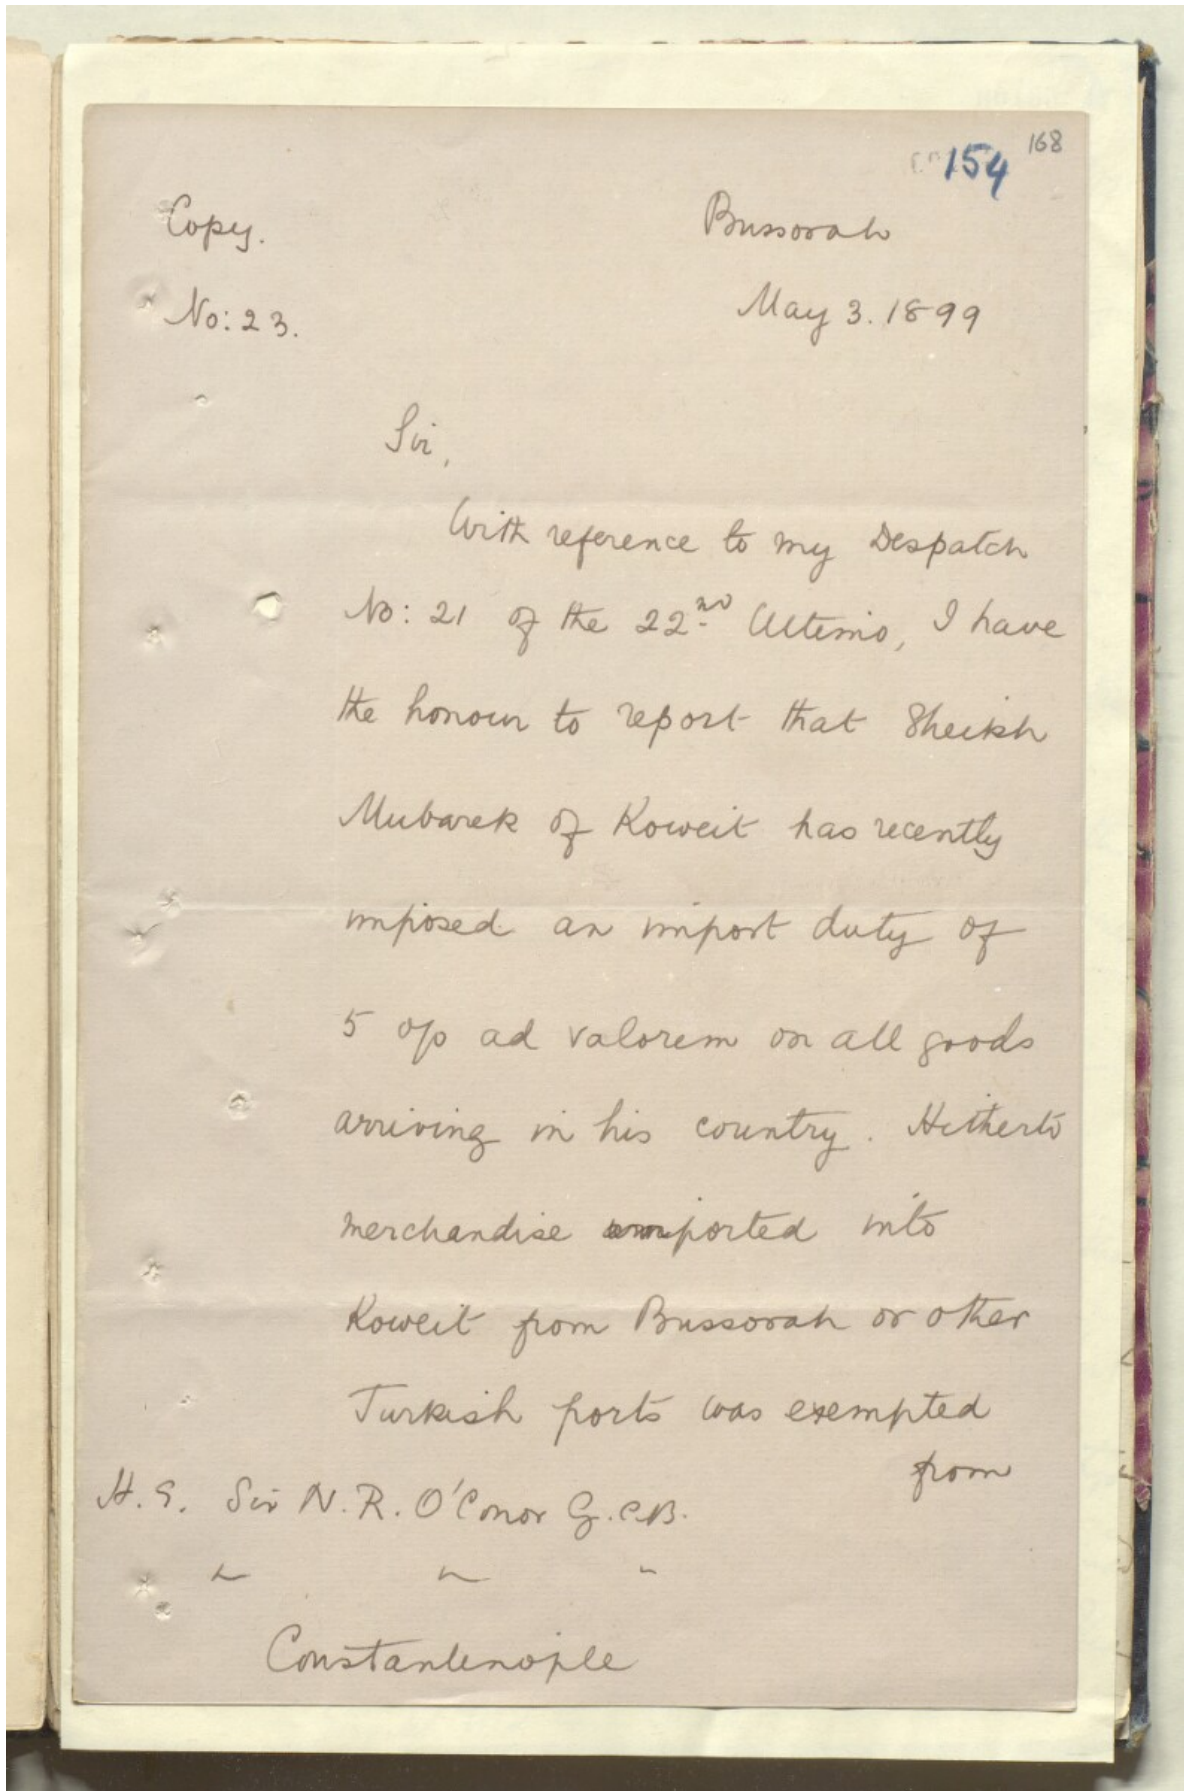 154 168
Copy. Bussorah
No: 23. May 3. 1899
Sir,
With reference to my Despatch
No: 21 of the 22nd Ultimo, I have
the honour to report that Sheikh
Mubarek of Koweit has recently
imposed an import duty of
5 o/o ad valorem on all goods
arriving in his country. Hitherto
merchandise imported into
Koweit from Bussorah or other
Turkish ports was exempted
from
H. E. Sir N. R. O'Conor G.C.B.
" " "
Constantinople